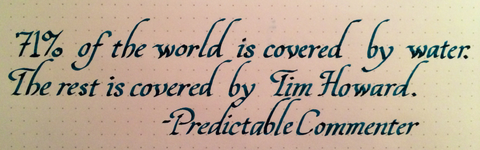 71% of the world is covered by water.
The rest is covered by Tim Howard.
-Predictable Commenter